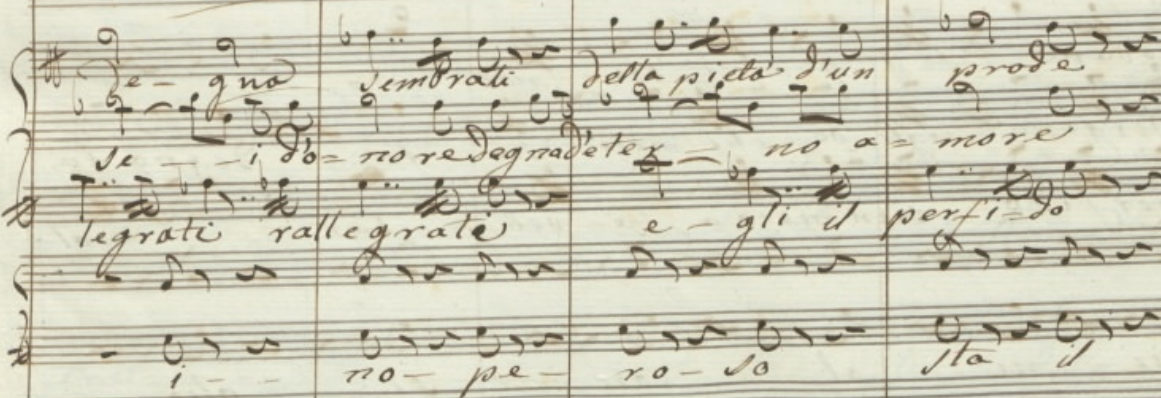 De - gna sembrati della pietà d'un prode
se - - i d'o = nore degna d'eter - no a = more
legrati rallegrati e - gli il perfi = do
i - - no - pe - ro - so sta il